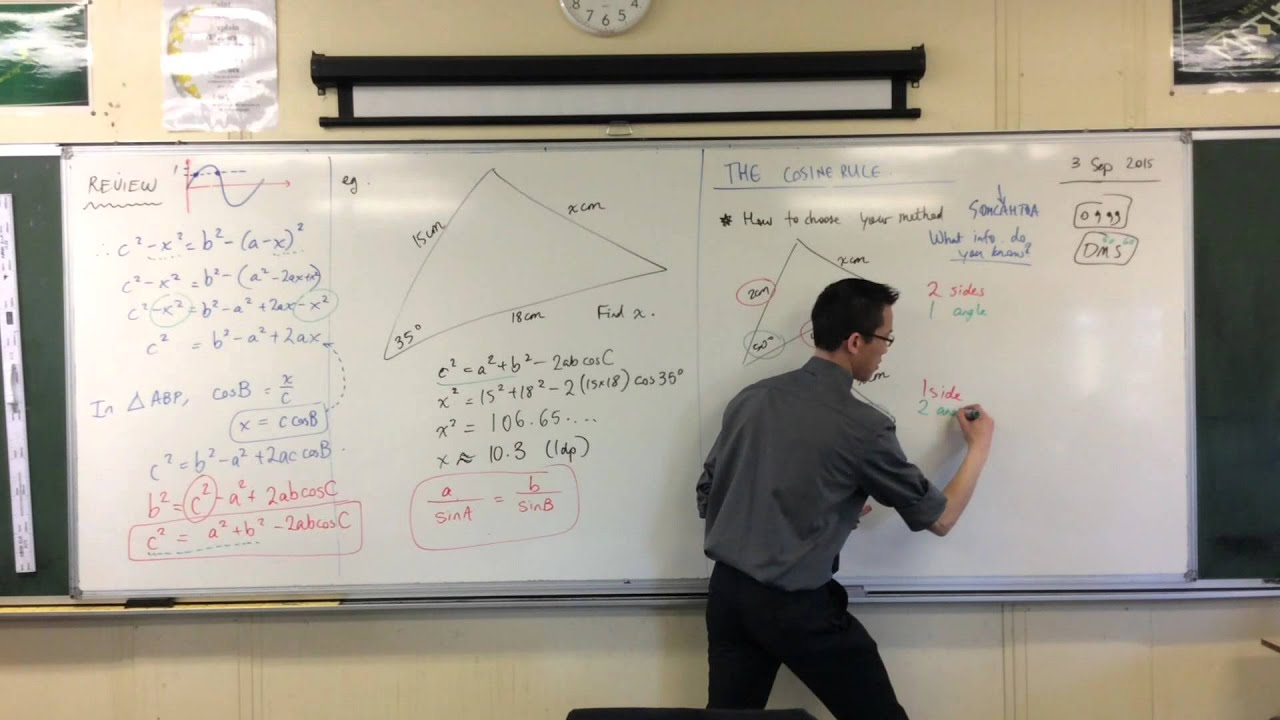 REVIEW
1
∴ c² - x² = b² - (a - x)²
c² - x² = b² - (a² - 2ax + x²)
c² - x² = b² - a² + 2ax - x²
c² = b² - a² + 2ax
In △ABP, cosB = x/c
x = c cosB
c² = b² - a² + 2ac cosB.
b² = c² - a² + 2abcosC
c² = a² + b² - 2abcosC
eg.
15cm
x cm
18cm
35°
Find x.
c² = a² + b² - 2abcosC
x² = 15² + 18² - 2(15x18) cos 35°
x² = 106.65....
x ≈ 10.3 (1dp)
a/sinA = b/sinB
8 7 6 5 4
THE COSINE RULE.
3 Sep 2015
* How to choose your method
SOHCAHTOA
What info do
you know?
DMS
x cm
2cm
2 sides
1 angle
cm
1 side
2 an